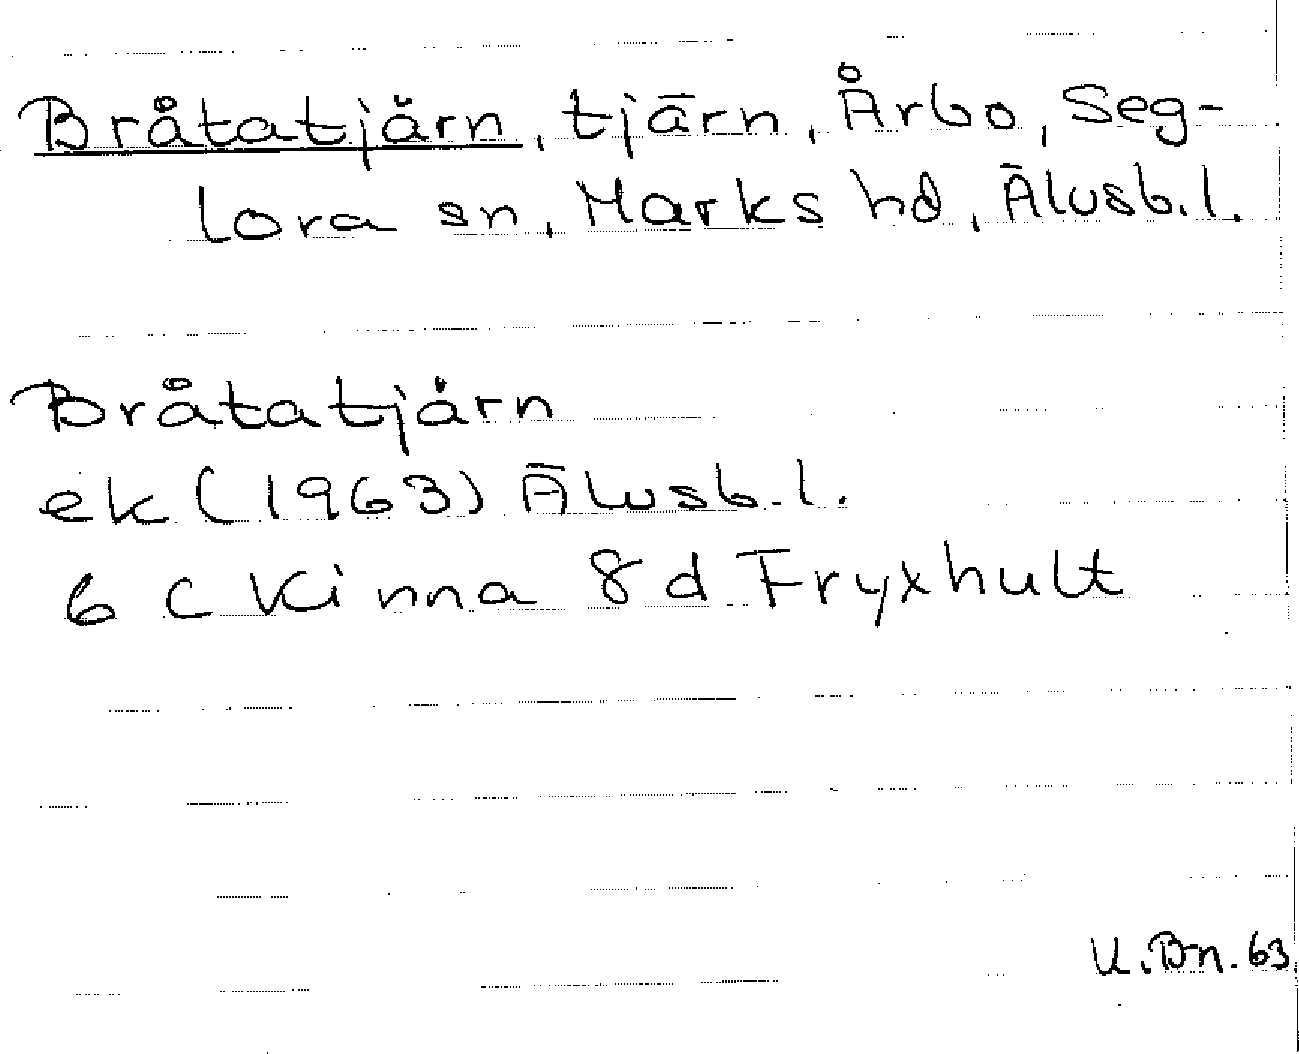 Bråtatjårn, tjärn, Årbo, Seg-
lora sn, Marks hd, Älvsb.l.
Bråtatjårn
ek (1963) Älvsb.l.
6 C Kinna 8 d Fryxhult
U.Bn.63